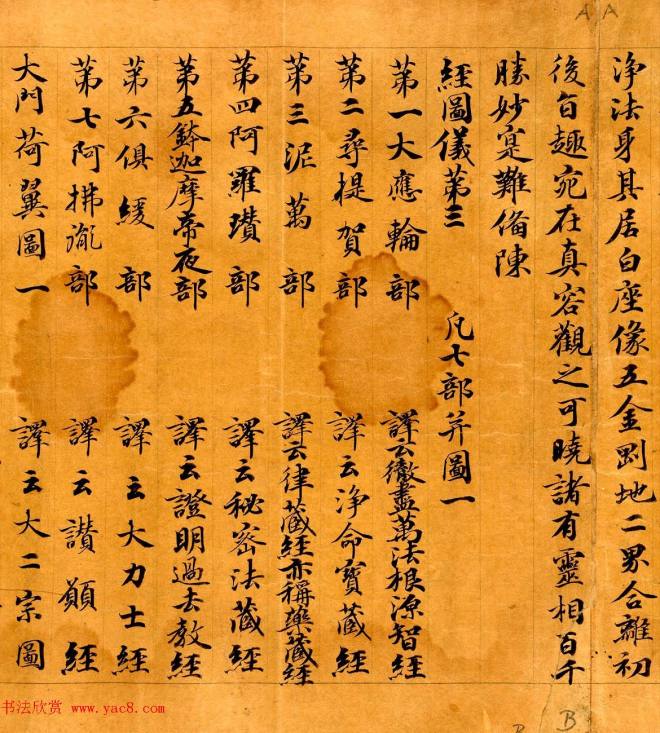 浄法身其居白座像五金剛地二界合離初
後旨趣宛在真容觀之可曉諸有靈相百千
勝妙寔難俻陳
經圖儀第三 凡七部并圖一
第一大應輪部 譯云徹盡萬法根源智經
第二尋提賀部 譯云浄命寶藏經
第三泥萬部 譯云律藏經亦稱藥藏經
第四阿羅瓚部 譯云秘密法藏經
第五鉢迦摩帝夜部 譯云證明過去教經
第六俱緩部 譯云大力士經
第七阿拂胤部 譯云讃願經
大門荷翼圖一 譯云大二宗圖
A A
B B
书法欣赏 www.yac8.com